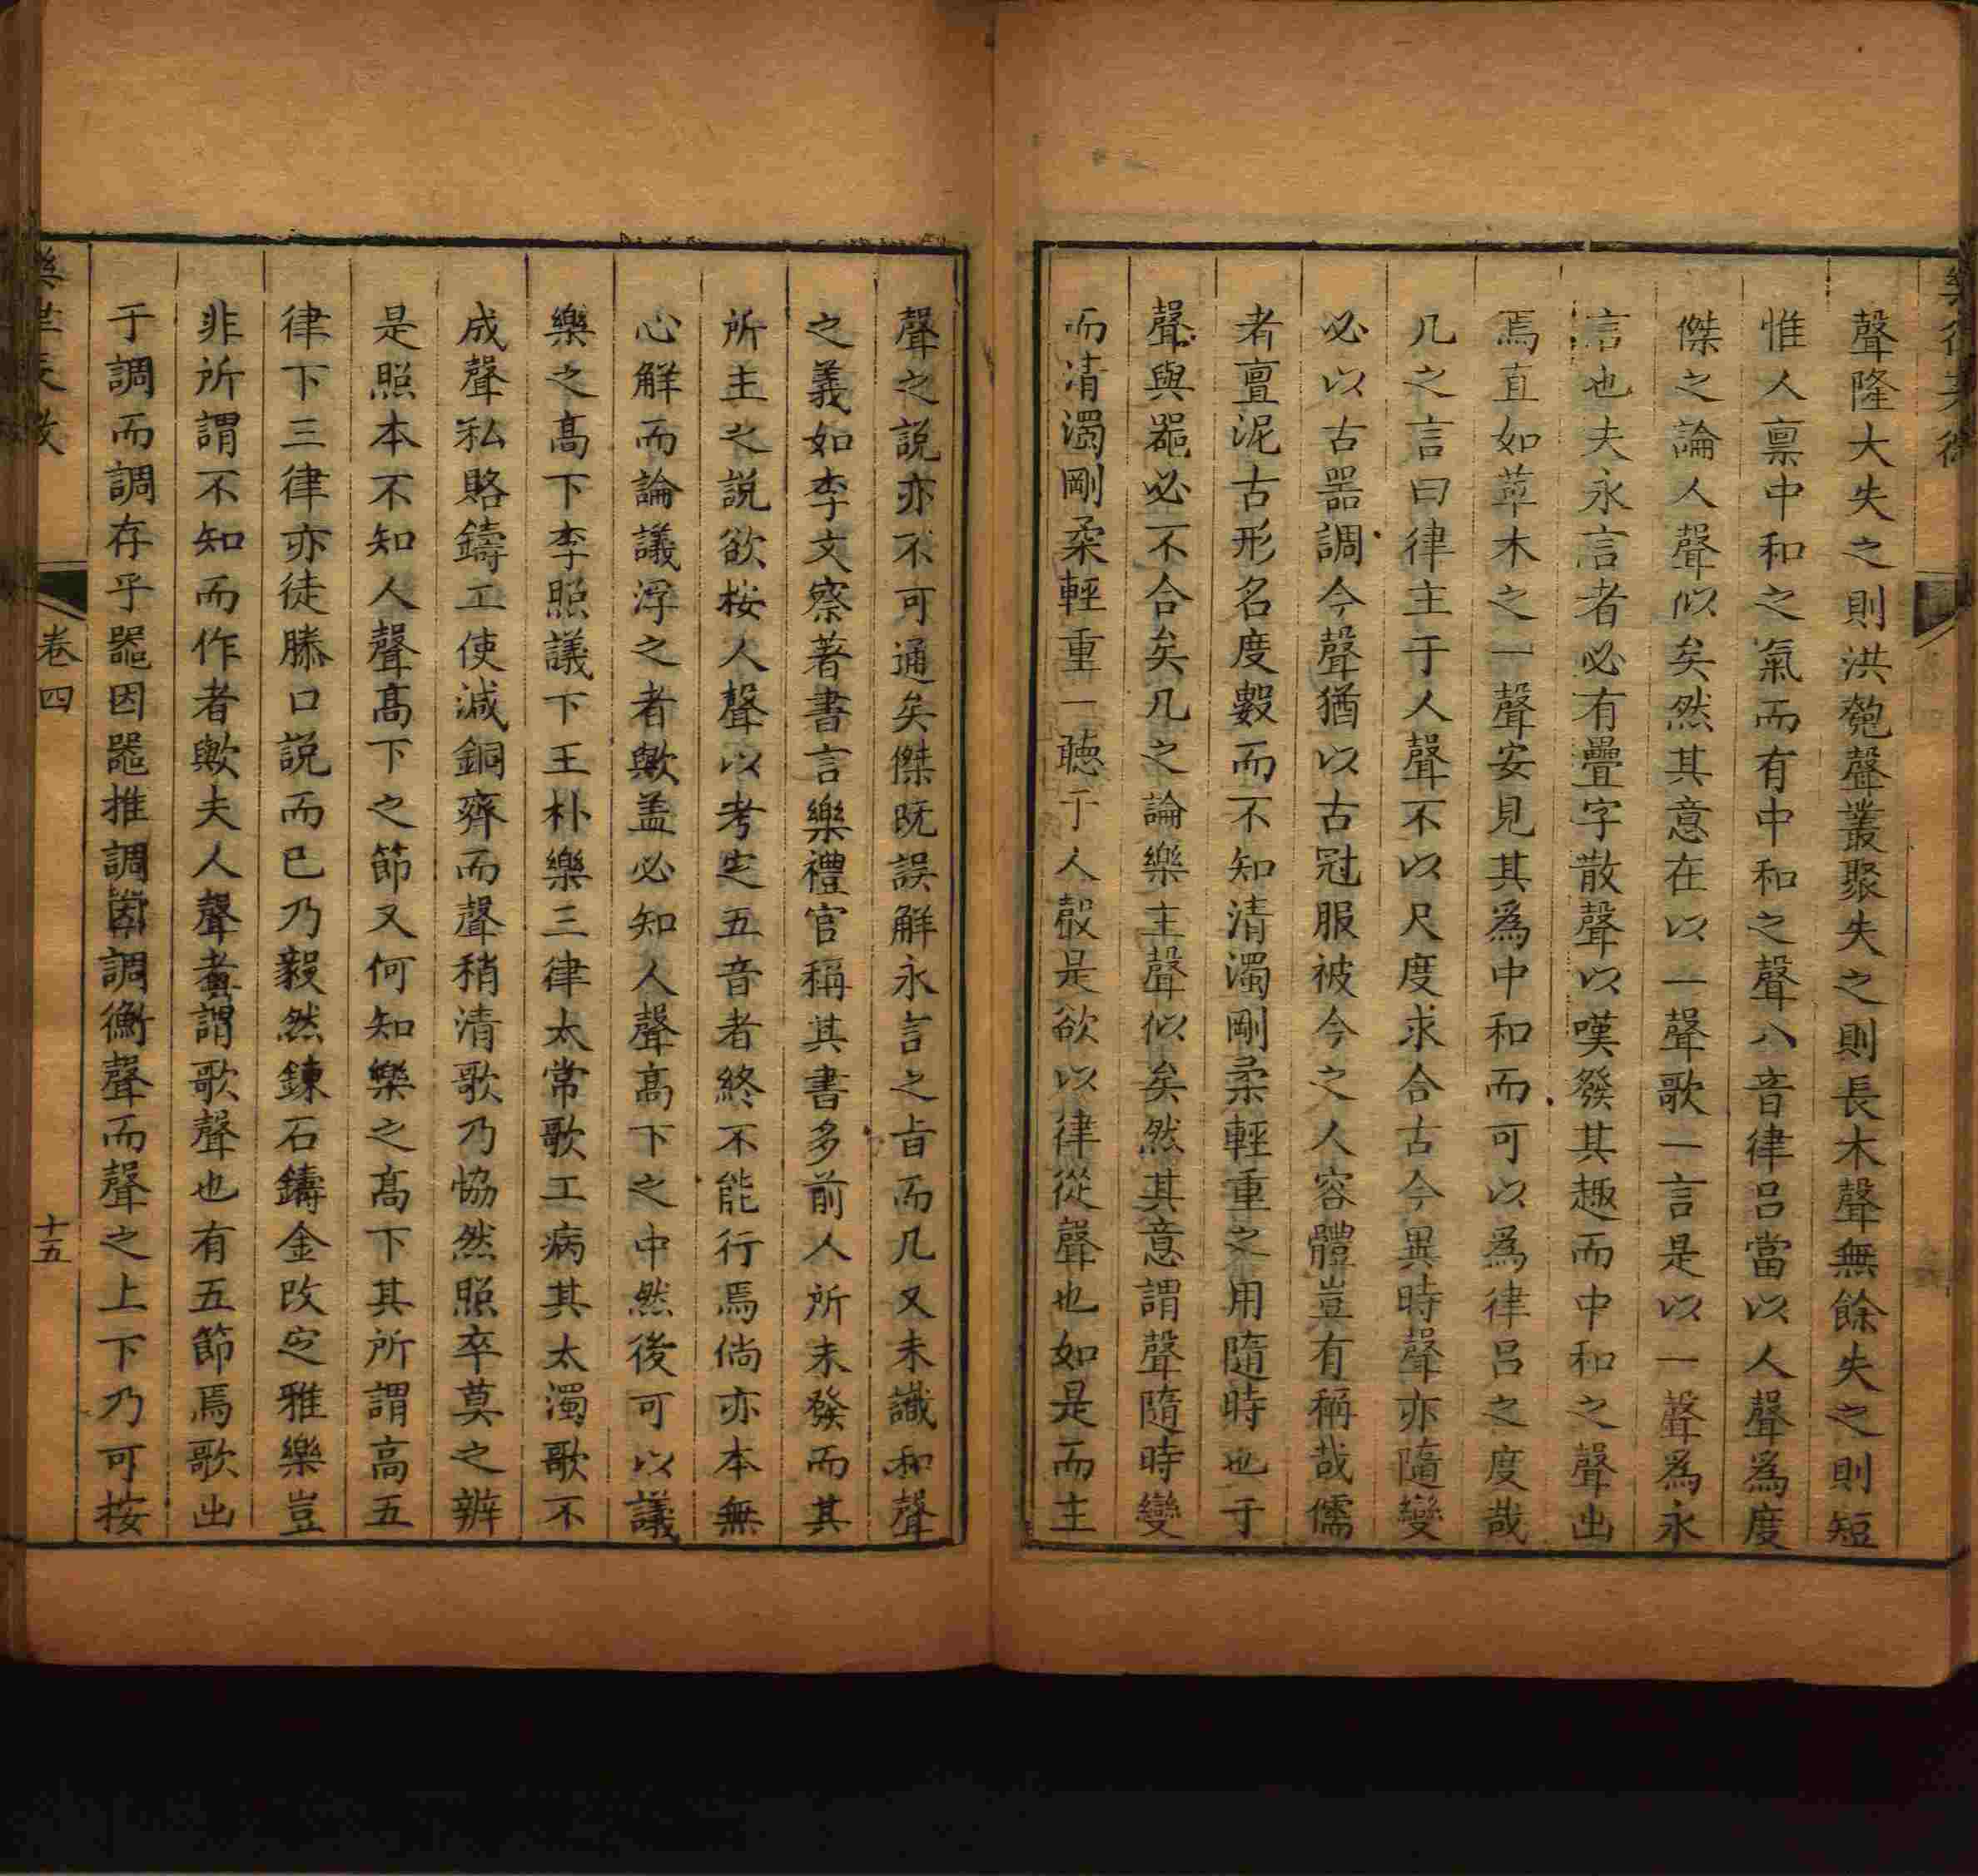 聲隆大失之則洪匏聲叢聚失之則長木聲無餘失之則短
惟人禀中和之氣而有中和之聲八音律呂當以人聲爲度
傑之論人聲似矣然其意在以一聲歌一言是以一聲爲永
言也夫永言者必有疊字散聲以嘆發其趣而中和之聲出
焉直如草木之一聲安見其爲中和而可以爲律呂之度哉
几之言曰律主于人聲不以尺度求合古今異時聲亦隨變
必以古器調今聲猶以古冠服被今之人容體豈有稱哉儒
者亶泥古形名度數而不知清濁剛柔輕重之用隨時也于
聲與器必不合矣几之論樂主聲似矣然其意謂聲隨時變
而清濁剛柔輕重一聽于人聲是欲以律從聲也如是而主
聲之説亦不可通矣傑既誤解永言之旨而几又未識和聲
之義如李文察著書言樂禮官稱其書多前人所未發而其
所主之説欲按人聲以考定五音者終不能行焉倘亦本無
心解而論議浮之者歟盖必知人聲高下之中然後可以議
樂之高下李照議下王朴樂三律太常歌工病其太濁歌不
成聲私賂鑄工使減銅齊而聲稍清歌乃恊然照卒莫之辨
是照本不知人聲高下之節又何知樂之高下其所謂高五
律下三律亦徒滕口説而已乃毅然鍊石鑄金改定雅樂豈
非所謂不知而作者歟夫人聲者謂歌聲也有五節焉歌出
于調而調存乎器因器推調因調衡聲而聲之上下乃可按
卷四
十五